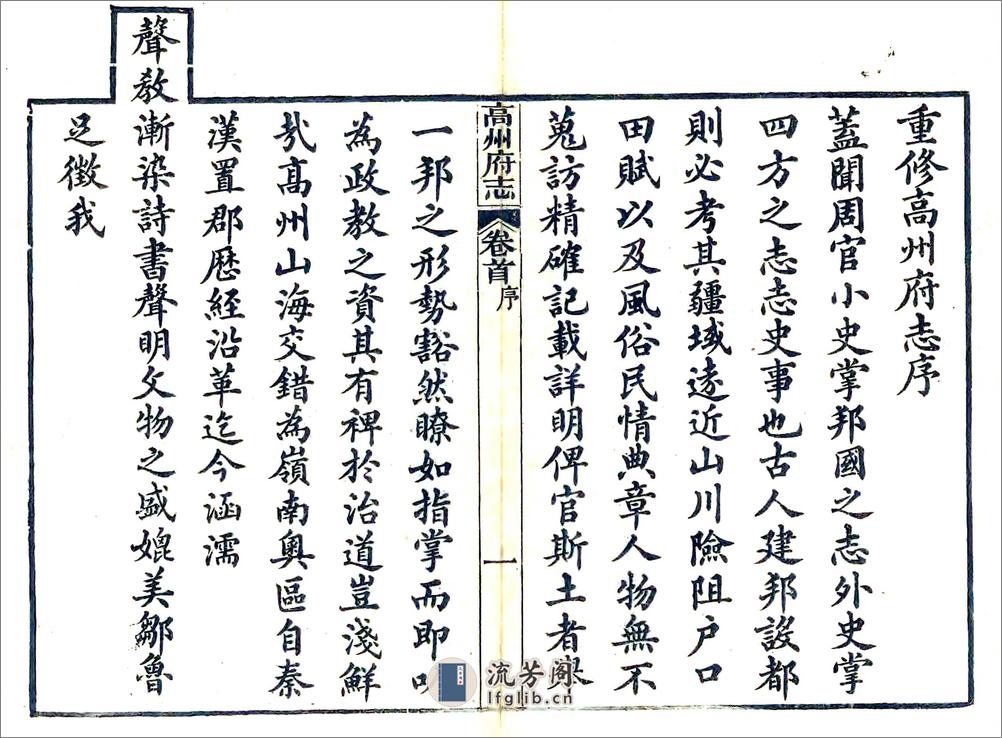 重修高州府志序
蓋聞周官小史掌邦國之志外史掌
四方之志志史事也古人建邦設都
則必考其疆域遠近山川險阻户口
田賦以及風俗民情典章人物無不
蒐訪精確記載詳明俾官斯土者
高州府志 卷首 序 一
一邦之形勢豁然瞭如指掌而即
為政教之資其有裨於治道豈淺鮮
㢤高州山海交錯為嶺南奧區自秦
漢置郡歷經沿革迄今涵濡
聲教漸染詩書聲明文物之盛媲美鄒魯
足徵我
流芳阁
lfglib.cn